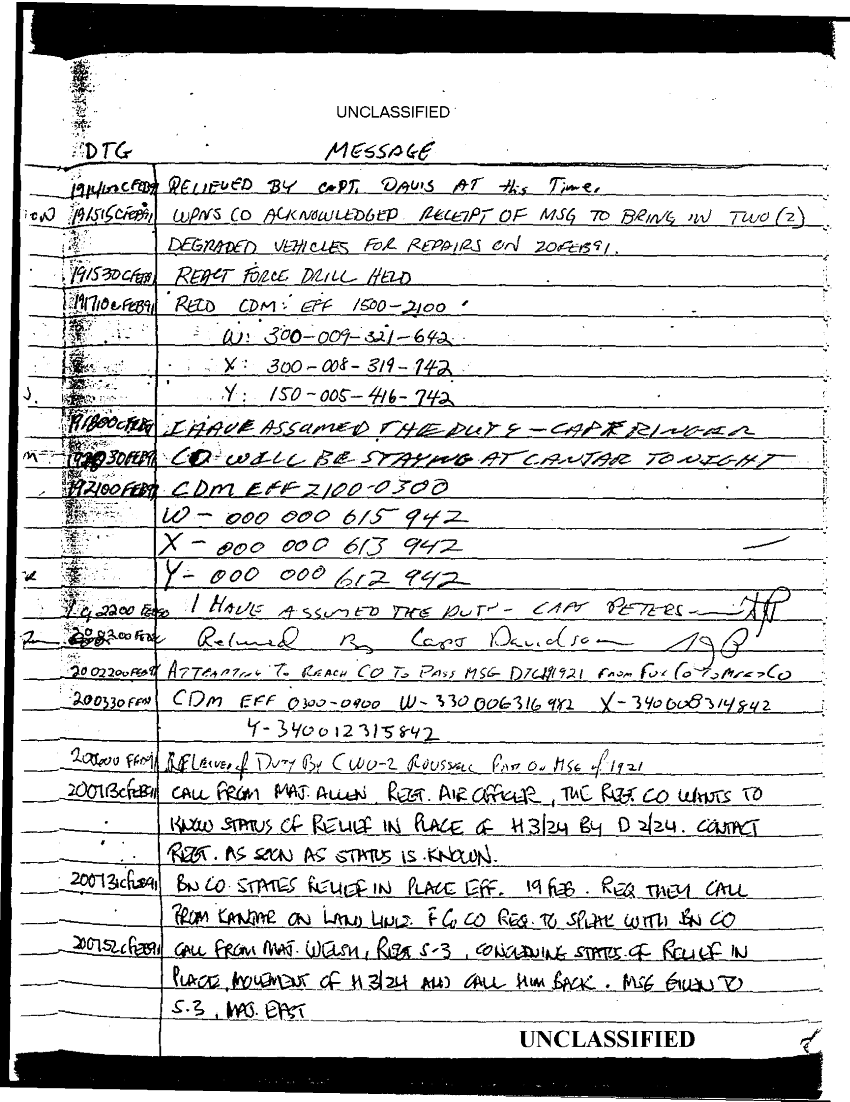 UNCLASSIFIED
DTG MESSAGE
RELIEVED BY CAPT. DAVIS AT this Time.
191515CFEB91 WPNS CO ACKNOWLEDGED RECEIPT OF MSG TO BRING IN TWO (2)
DEGRADED VEHICLES FOR REPAIRS ON 20FEB91.
191530CFEB91 REACT FORCE DRILL HELD
191710CFEB91 RECD CDM: EFF 1500-2100
W: 300-009-321-642
X: 300-008-319-742
Y: 150-005-416-742
191800CFEB91 I HAVE ASSUMED THE DUTY - CAPT RINGER
192030FEB91 CO WILL BE STAYING AT CANJAR TONIGHT
192100FEB91 CDM EFF 2100-0300
W - 000 000 615 942
X - 000 000 613 942
Y - 000 000 612 942
192200 I HAVE ASSUMED THE DUTY - CAPT PETERS
Relieved By Capt Davidson
200220 ATTEMPTING TO REACH CO TO PASS MSG
200330 CDM EFF 0300-0900 W-330006316982 X-340008314842
Y-340012315842
RELIEVED of DUTY BY CWO-2 ROUSSELL PASS ON MSG of 1921
200713CFEB91 CALL FROM MAJ. ALLEN, REGT. AIR OFFICER, THE REGT. CO WANTS TO
KNOW STATUS OF RELIEF IN PLACE OF H 3/24 BY D 2/24. CONTACT
REGT. AS SOON AS STATUS IS KNOWN.
200731CFEB91 BN CO STATES RELIEF IN PLACE EFF. 19 FEB. REQ THEY CALL
FROM KANJAR ON LAND LINE. CO REQ. TO SPEAK WITH BN CO
200752CFEB91 CALL FROM MAJ. WELSH, REGT S-3, CONCERNING STATUS OF RELIEF IN
PLACE, MOVEMENT OF H 3/24 AND CALL HIM BACK. MSG GIVEN TO
S-3, MAJ. EAST
UNCLASSIFIED